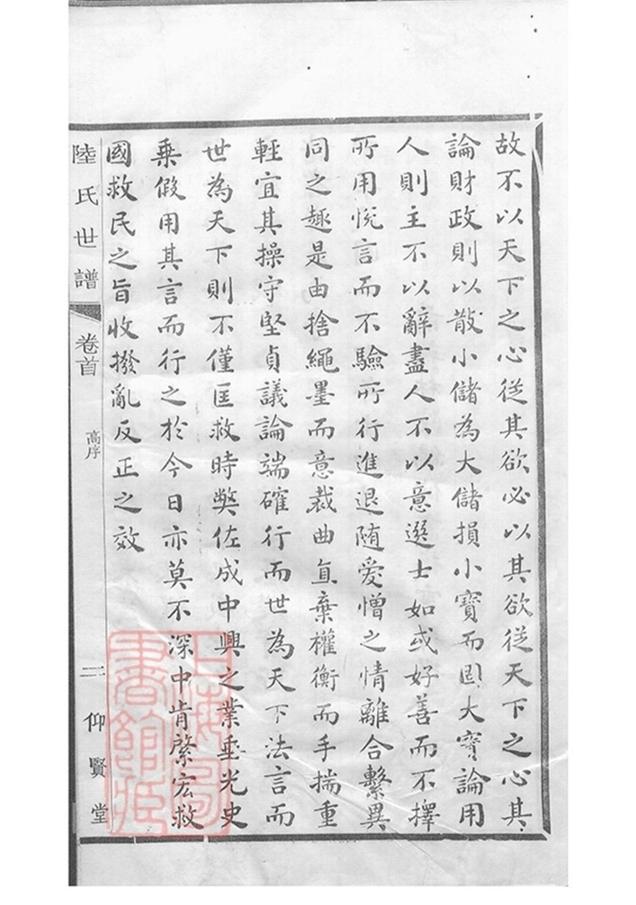 故不以天下之心從其欲必以其欲從天下之心其
論財政則以散小儲為大儲損小寶而固大寶論用
人則主不以辭盡人不以意選士如或好善而不擇
所用悅言而不驗所行進退随愛憎之情離合繫異
同之趣是由捨繩墨而意裁曲直棄權衡而手揣重
輕宜其操守堅貞議論端確行而世為天下法言而
世為天下則不僅匡救時獘佐成中興之業垂光史
乘假用其言而行之於今日亦莫不深中肯綮宏救
國救民之旨收撥亂反正之效
陸氏世譜
卷首
高序
二
仰賢堂
上海圖書館藏